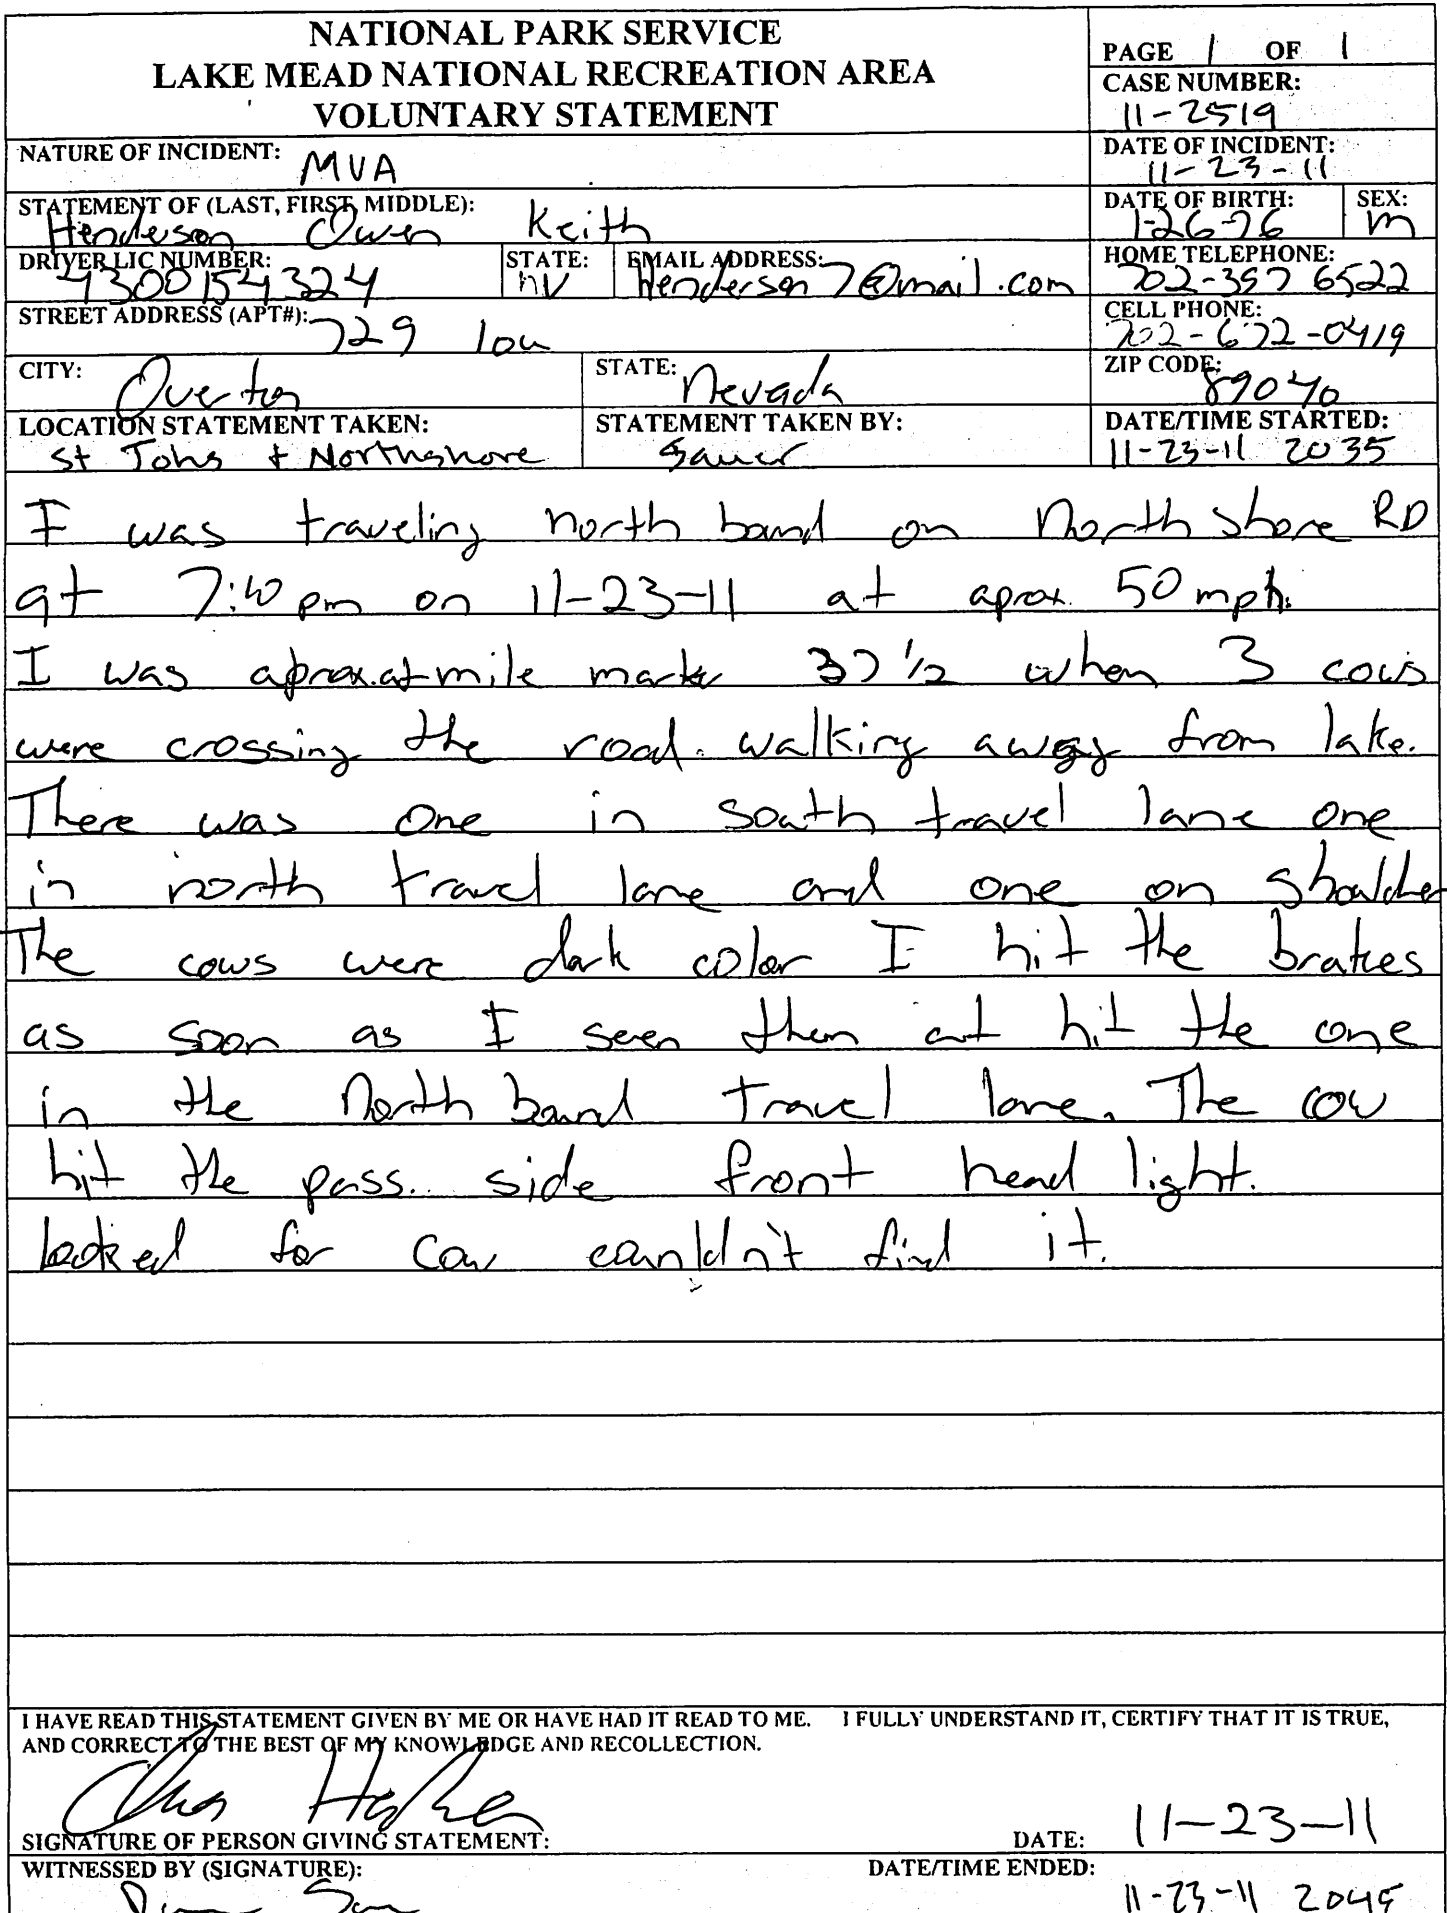 NATIONAL PARK SERVICE
LAKE MEAD NATIONAL RECREATION AREA
VOLUNTARY STATEMENT
PAGE 1 OF 1
CASE NUMBER:
11-2519
NATURE OF INCIDENT: MVA
DATE OF INCIDENT:
11-23-11
STATEMENT OF (LAST, FIRST, MIDDLE):
Henderson Owen Keith
DATE OF BIRTH:
1-26-76
SEX:
m
DRIVER LIC NUMBER:
4300154324
STATE:
NV
EMAIL ADDRESS:
Henderson7@mail.com
HOME TELEPHONE:
702-397 6522
STREET ADDRESS (APT#):
729 lou
CELL PHONE:
702-672-0419
CITY: Overton
STATE: Nevada
ZIP CODE:
89040
LOCATION STATEMENT TAKEN:
St Johs + Northshore
STATEMENT TAKEN BY:
Sauer
DATE/TIME STARTED:
11-23-11 2035
I was traveling north bound on North shore RD
at 7:10 pm on 11-23-11 at aprox. 50 mph.
I was aprox. at mile marker 37 1/2 when 3 cows
were crossing the road. walking away from lake.
There was one in south travel lane one
in north travel lane and one on shoulder
The cows were dark color I hit the brakes
as soon as I seen them and hit the one
in the North bound travel lane. The cow
hit the pass. side front head light.
looked for cow couldn't find it.
I HAVE READ THIS STATEMENT GIVEN BY ME OR HAVE HAD IT READ TO ME. I FULLY UNDERSTAND IT, CERTIFY THAT IT IS TRUE,
AND CORRECT TO THE BEST OF MY KNOWLEDGE AND RECOLLECTION.
SIGNATURE OF PERSON GIVING STATEMENT:
DATE: 11-23-11
WITNESSED BY (SIGNATURE):
DATE/TIME ENDED:
11-23-11 2045